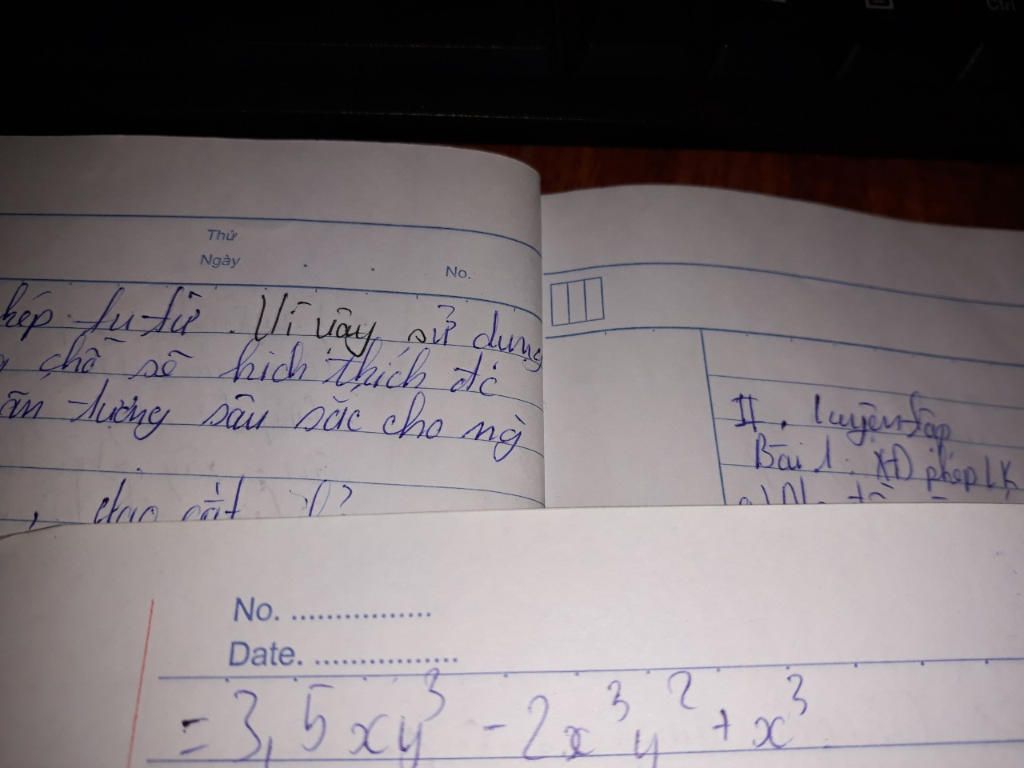 Ctrl
Thứ
Ngày
No.
hép tu từ. Vì vậy, sử dụng
chỗ sẽ kích thích
ấn tượng sâu sắc cho
II. Luyện tập
Bài 1: XĐ phép LK
No. ................
Date. ................
= 3,5xy³ - 2x³y² + x³